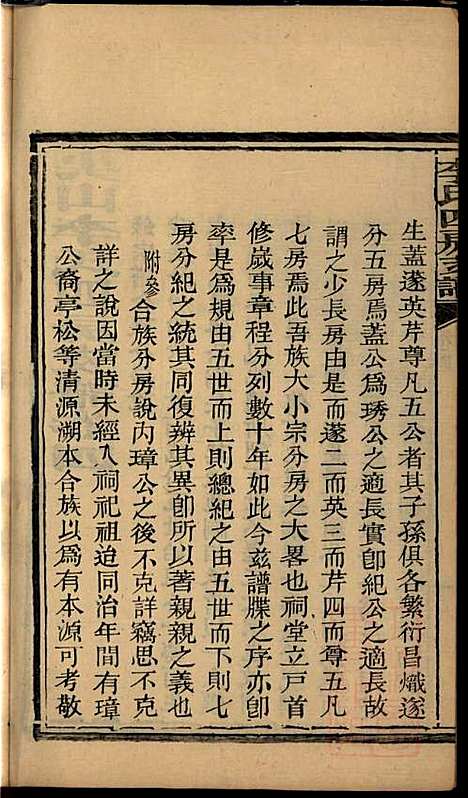 李氏四房分譜
生蓋遂英芹尊凡五公者其子孫俱各繁衍昌熾遂
分五房焉蓋公爲琇公之適長實卽紀公之適長故
謂之少長房由是而遂二而英三而芹四而尊五凡
七房焉此吾族大小宗分房之大畧也祠堂立戸首
修歲事章程分列數十年如此今玆譜牒之序亦卽
率是爲規由五世而上則總紀之由五世而下則七
房分紀之統其同復辨其異卽所以著親親之義也
附參合族分房說內璋公之後不克詳竊思不克
詳之說因當時未經入祠祀祖迨同治年間有璋
公裔亭松等清源溯本合族以爲有本源可考敬